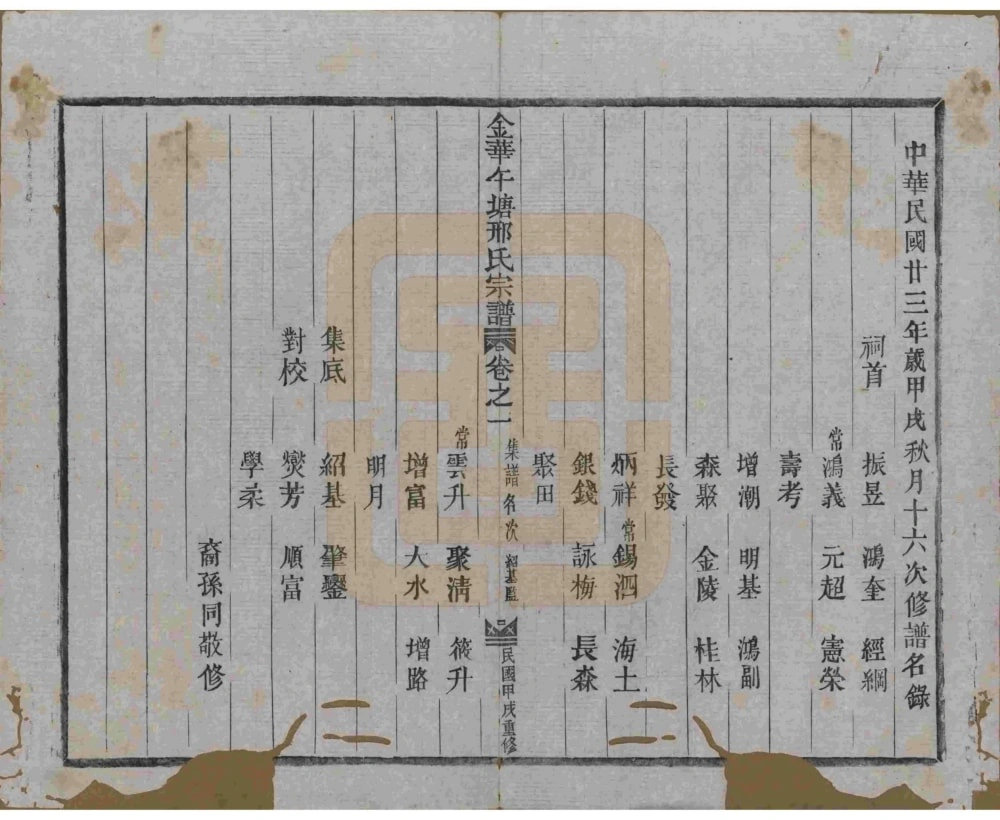 中華民國廿三年歲甲戌秋月十六次修譜名錄
祠首 振昱 鴻奎 經綱
常鴻義 元超 憲榮
壽考
增潮 明基 鴻副
森聚 金陵 桂林
長發
炳祥 常錫泗 海土
銀錢 詠梅 長森
聚田
金華午塘邢氏宗譜 卷之一 集譜名次 紹基監 民國甲戌重修
常雲升 聚淸 筱升
增富 大水 增路
明月
集底 紹基 肇鑒
對校 熒芳 順富
學采
裔孫同敬修